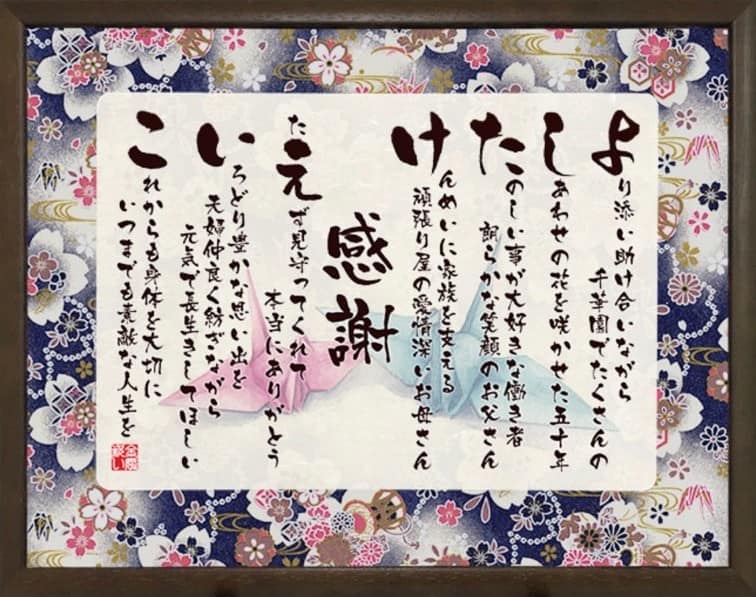 より添い助け合いながら
千華園でたくさんの
しあわせの花を咲かせた五十年
たのしい事が大好きな働き者
朗らかな笑顔のお父さん
けんめいに家族を支える
頑張り屋の愛情深いお母さん
感謝
たえず見守ってくれて
本当にありがとう
いろどり豊かな思い出を
夫婦仲良く紡ぎながら
元気で長生きしてほしい
これからも身体を大切に
いつまでも素敵な人生を